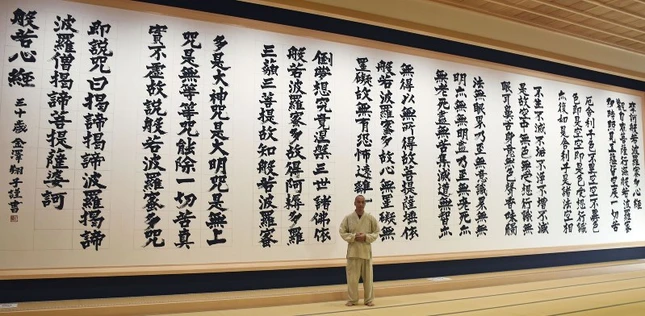 摩訶般若波羅蜜多心經
觀自在菩薩行深般若波羅蜜
多時照見五蘊皆空度一切苦
厄舎利子色不異空空不異色
色即是空空即是色受想行識
亦復如是舎利子是諸法空相
不生不滅不垢不淨不增不減
是故空中無色無受想行識無
眼耳鼻舌身意無色聲香味觸
法無眼界乃至無意識界無無
明亦無無明盡乃至無老死亦
無老死盡無苦集滅道無智亦
無得以無所得故菩提薩埵依
般若波羅蜜多故心無罣礙無
罣礙故無有恐怖遠離
倒夢想究竟涅槃三世諸佛依
般若波羅蜜多故得阿耨多羅
三藐三菩提故知般若波羅蜜
多是大神咒是大明咒是無上
咒是無等等咒能除一切苦真
實不虛故説般若波羅蜜多咒
即説咒曰揭諦揭諦波羅揭諦
波羅僧揭諦菩提薩婆訶
般若心經
三十歳 金澤翔子謹書